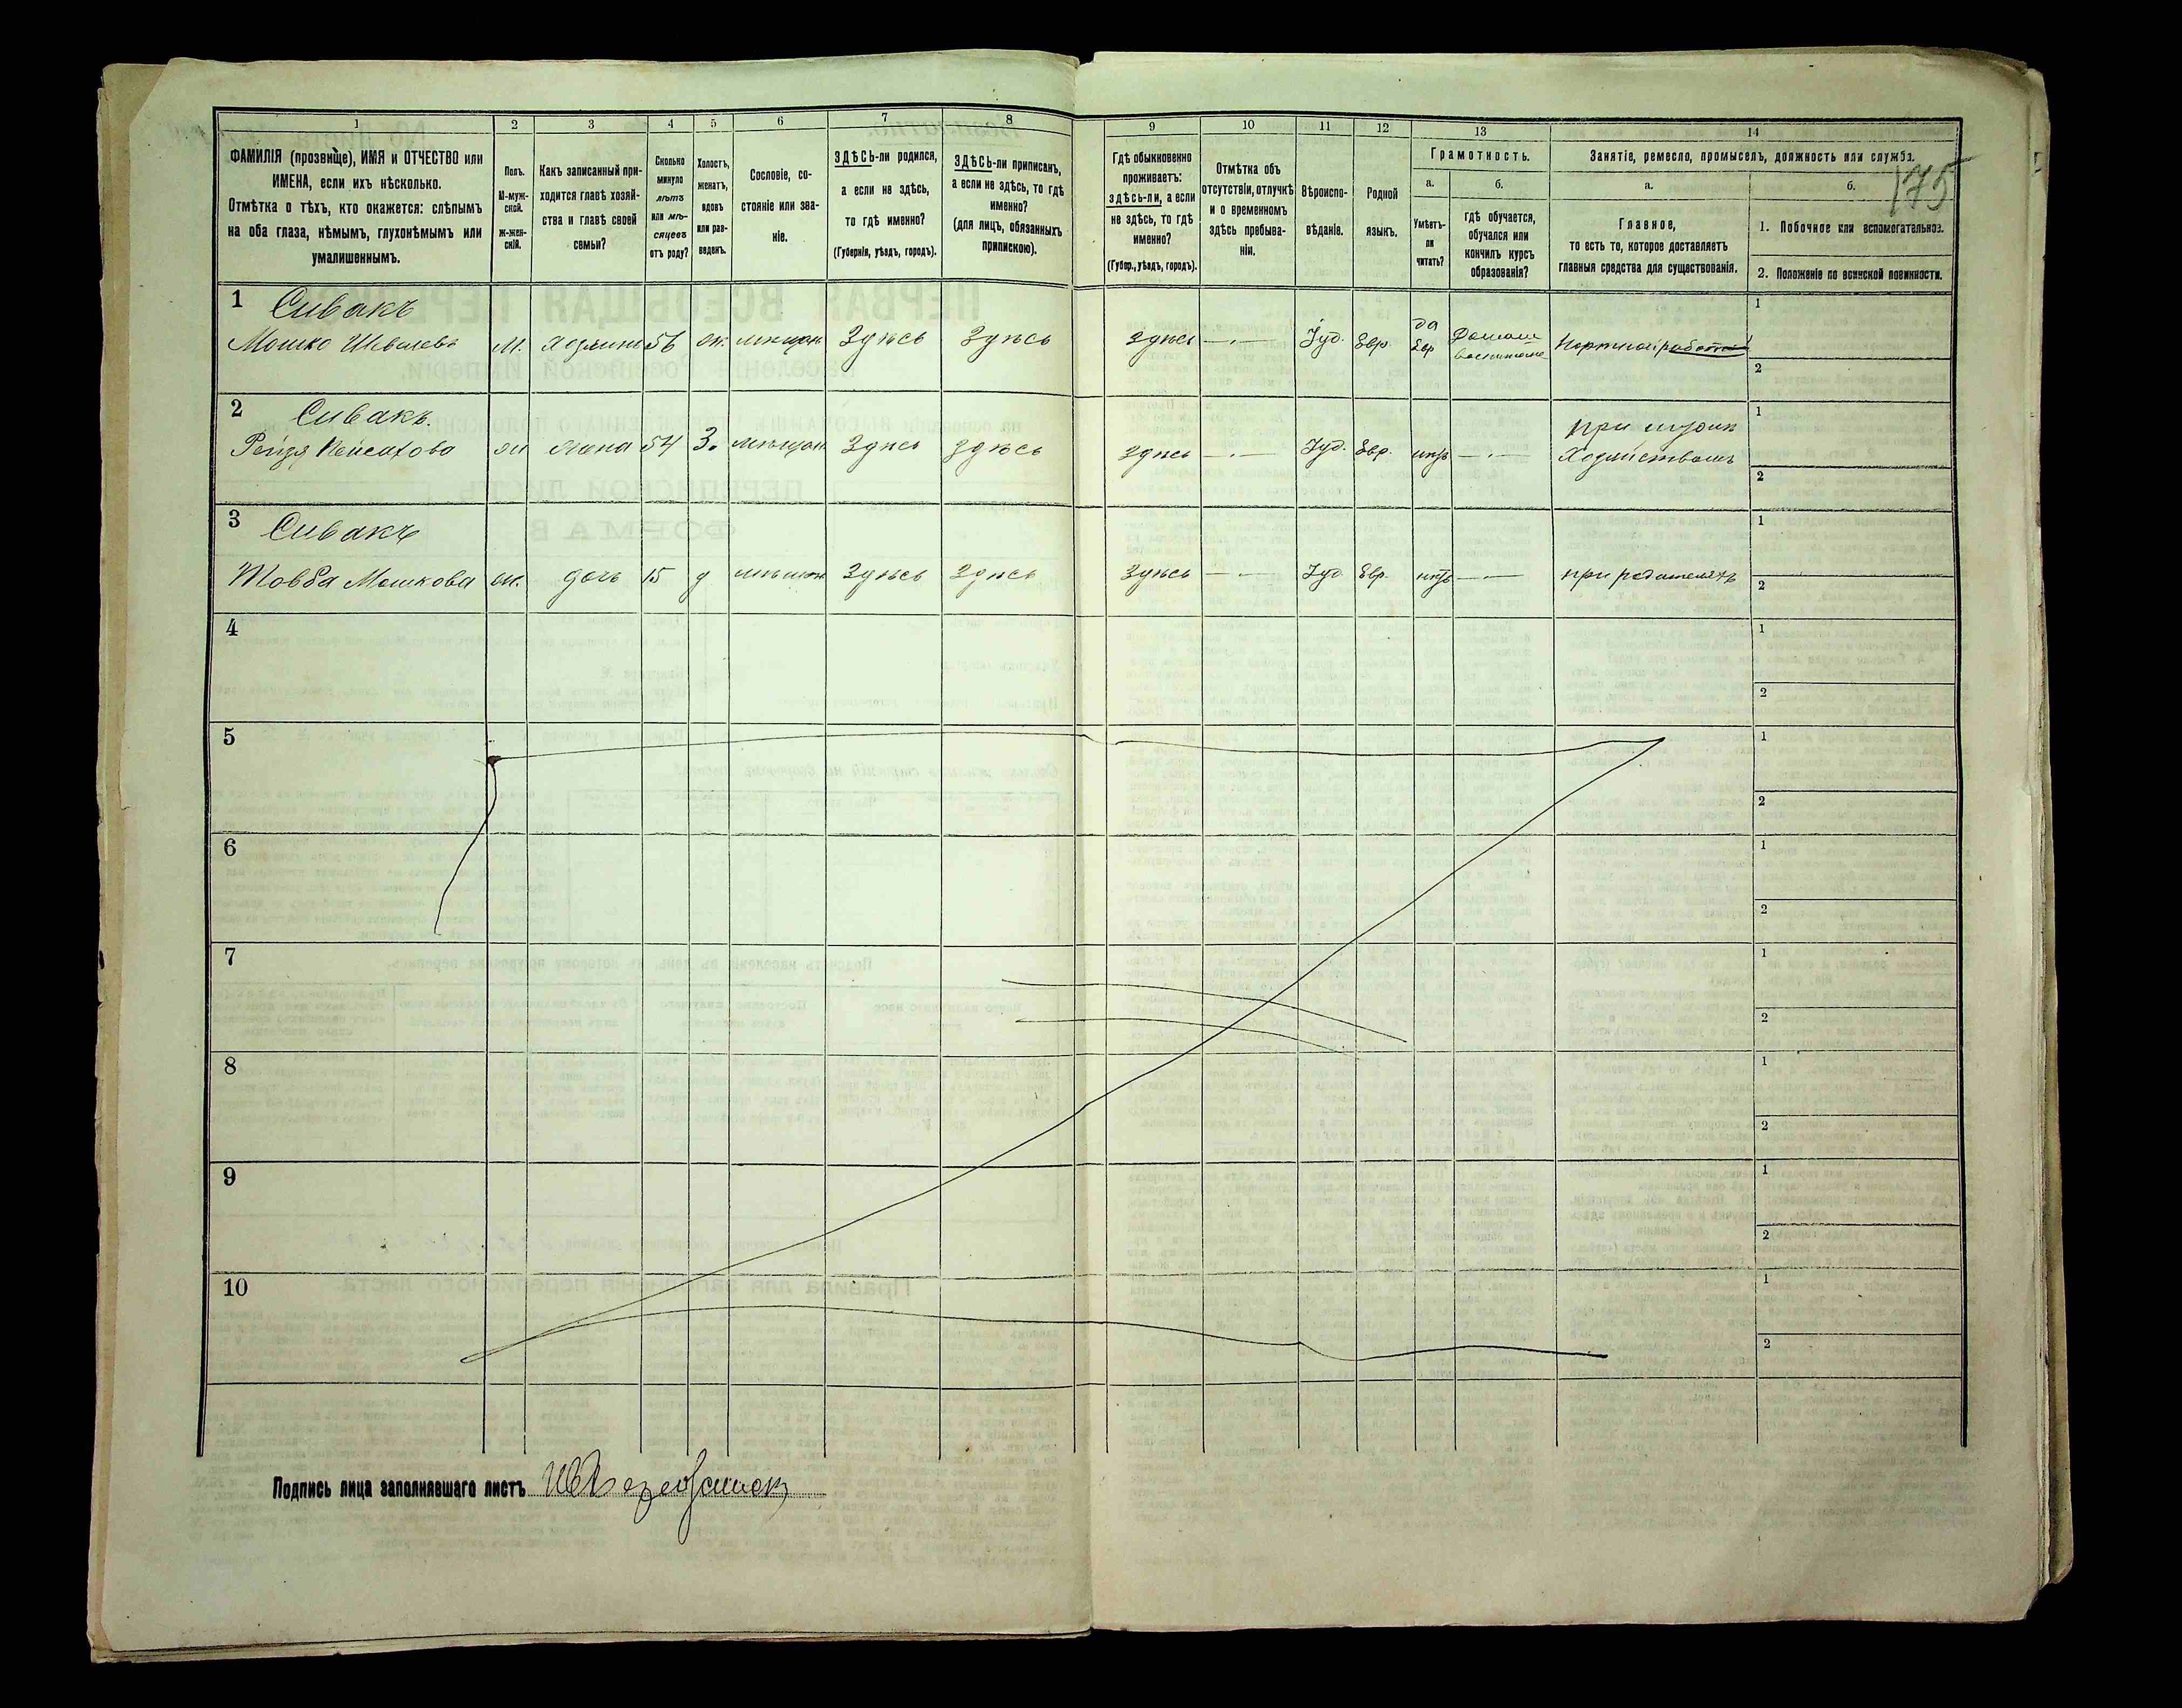 175
1
ФАМИЛІЯ (прозвище), ИМЯ и ОТЧЕСТВО или
ИМЕНА, если ихъ нѣсколько.
Отмѣтка о тѣхъ, кто окажется: слѣпымъ
на оба глаза, нѣмымъ, глухонѣмымъ или
умалишеннымъ.
2
Полъ.
М-муж-
ской.
Ж-жен-
скій.
3
Какъ записанный при-
ходится главѣ хозяй-
ства и главѣ своей
семьи?
4
Сколько
минуло
лѣтъ
или мѣ-
сяцевъ
отъ роду?
5
Холостъ,
женатъ,
вдовъ
или раз-
веденъ.
6
Сословіе, со-
стояніе или зва-
ніе.
7
ЗДѢСЬ-ли родился,
а если не здѣсь,
то гдѣ именно?
(Губернія, уѣздъ, городъ).
8
ЗДѢСЬ-ли приписанъ,
а если не здѣсь, то гдѣ
именно?
(для лицъ, обязанныхъ
припискою).
9
Гдѣ обыкновенно
проживаетъ:
здѣсь-ли, а если
не здѣсь, то гдѣ
именно?
(Губер., уѣздъ, городъ).
10
Отмѣтка объ
отсутствіи, отлучкѣ
и о временномъ
здѣсь пребыва-
ніи.
11
Вѣроиспо-
вѣданіе.
12
Родной
языкъ.
13
Грамотность.
а.
Умѣетъ-
ли
читать?
б.
Гдѣ обучается,
обучался или
кончилъ курсъ
образованія?
14
Занятіе, ремесло, промыселъ, должность или служба.
а.
Главное,
то есть то, которое доставляетъ
главныя средства для существованія.
б.
1. Побочное или вспомогательное.
2. Положеніе по воинской повинности.
1 Сивакъ
Мошко М. Хозяинъ 56 ж. мѣщан Здѣсь Здѣсь Здѣсь — Іуд. Евр. да Евр Домаш Портной
1
2
2 Сивакъ.
Рейзя Пейсахова ж жена 54 З. мѣщан Здѣсь Здѣсь Здѣсь — Іуд. Евр. нѣтъ — при мужѣ
Хозяйствомъ
1
2
3 Сивакъ
Товба Мошкова ж. дочь 15 д мѣщан Здѣсь Здѣсь Здѣсь — Іуд Евр. нѣтъ — при родителяхъ
1
2
4
1
2
5
1
2
6
1
2
7
1
2
8
1
2
9
1
2
10
1
2
Подпись лица заполнявшаго листъ